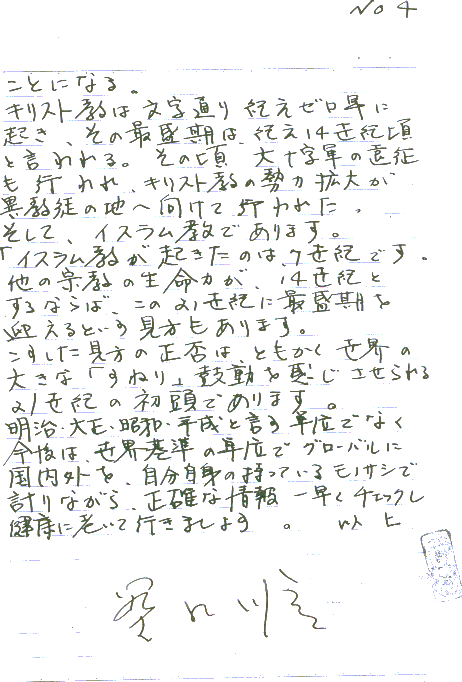 No 4
ことになる。
キリスト教は文字通り紀元ゼロ年に
起き、その最盛期は、紀元14世紀頃
と言われる。その頃 大十字軍の遠征
も行われ、キリスト教の勢力拡大が
異教徒の地へ向けて行われた。
そして、イスラム教であります。
「イスラム教が起きたのは、7世紀です。
他の宗教の生命力が、14世紀と
するならば、この21世紀に最盛期を
迎えるという見方もあります。
こうした見方の正否は、ともかく世界の
大きな「うねり」鼓動を感じさせられる
21世紀の初頭であります。
明治・大正・昭和・平成と言う単位でなく
今後は、世界基準の単位でグローバルに
国内外を、自分自身の持っているモノサシで
計りながら、正確な情報一早くチェックし
健康に老いて行きましょう。 以上